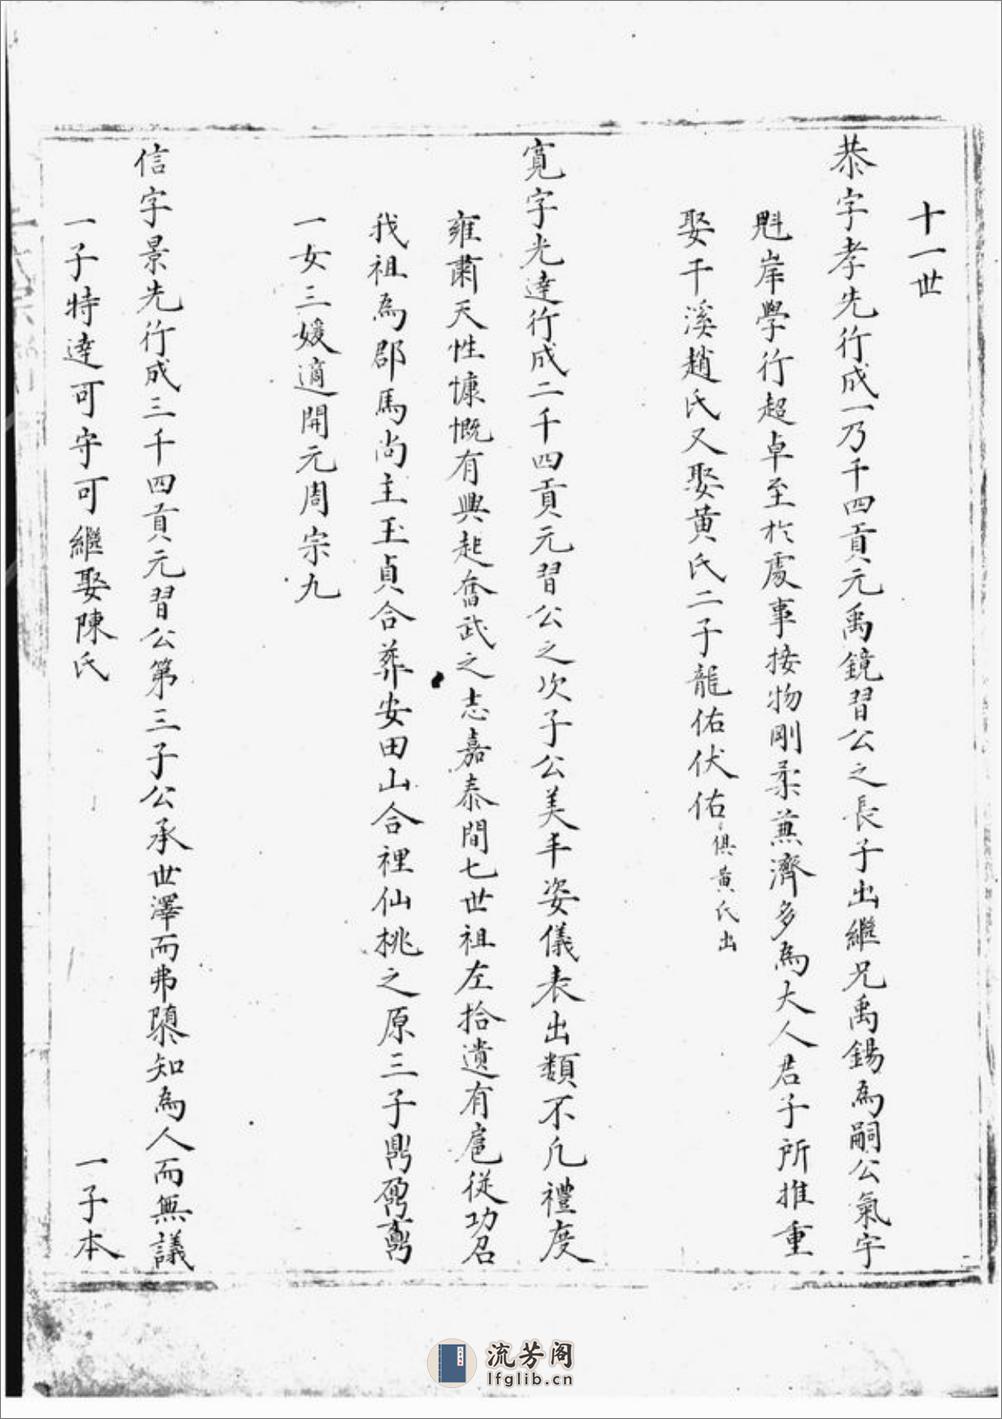 十一世
恭字孝先行成一乃千四貢元禹鏡習公之長子出繼兄禹錫為嗣公氣宇
魁岸學行超卓至於處事接物剛柔兼濟多為大人君子所推重
娶干溪趙氏又娶黃氏二子龍佑伏佑俱黃氏出
寬字光達行成二千四貢元習公之次子公美丰姿儀表出類不凡禮度
雍肅天性慷慨有興起奮武之志嘉泰間七世祖左拾遺有扈從功召
我祖為郡馬尚主玉貞合葬安田山合裡仙桃之原三子鼎鼐
一女三媛適開元周宗九
信字景先行成三千四貢元習公第三子公承世澤而弗隳知為人而無議
一子特達可守可繼娶陳氏 一子本
流芳阁
lfglib.cn